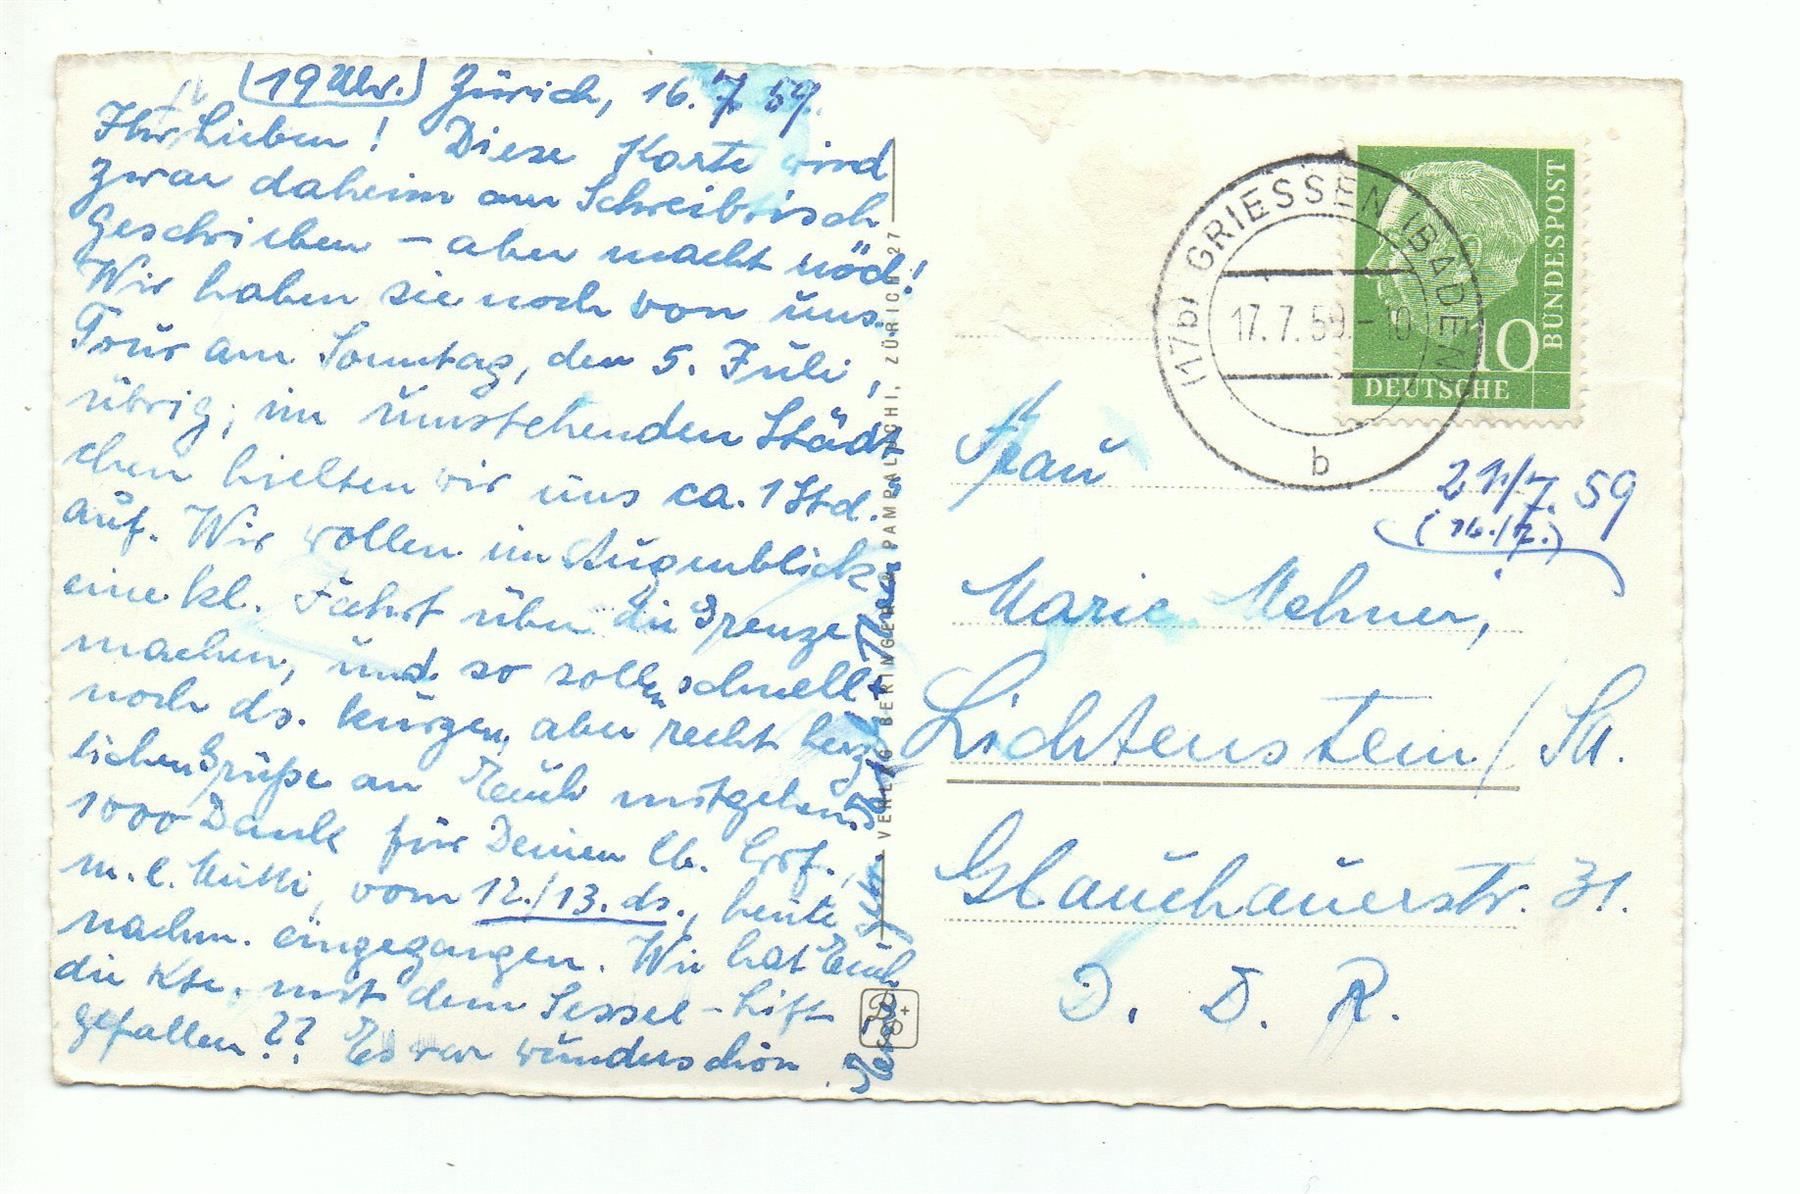 (19 Uhr.) Zürich, 16. 7. 59.
Ihr Lieben! Diese Karte wird
zwar daheim am Schreibtisch
geschrieben – aber macht nöd!
Wir haben sie noch von uns.
Tour am Sonntag, den 5. Juli,
übrig; im umstehenden Städt
chen hielten wir uns ca. 1 Std.
auf. Wir wollen im Augenblick
eine kl. Fahrt über die Grenze
machen, und so sollen schnell
noch ds. kurzen, aber recht herz
lichen Grüße an Euch mitgehen.
1000 Dank für Deinen lb. Brf.,
m. l. Mutti, vom 12./13. ds., heute
nachm. eingegangen. Wie hat Euch
die Kte. mit dem Sessel-Lift
gefallen?? Es war wunderschön.
VERLAG BERINGER & PAMPALUCHI, ZÜRICH 27
(17b) GRIESSEN (BADEN)
17.7.59.-10
b
DEUTSCHE
BUNDESPOST
10
Frau
21/7. 59
(16./7.)
Marie Mehner,
Lichtenstein / Sa.
Glauchauerstr. 31.
D. D. R.